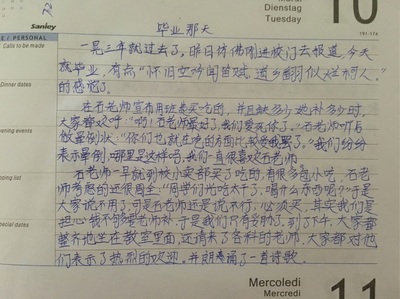 Sanley
Martedì
Dienstag
Tuesday
10
E / PERSONAL
Calls to be made
毕业那天
一晃三年就过去了，昨日仿佛刚进校门去报道，今天
就毕业，有点“怀旧空吟闻笛赋，到乡翻似烂柯人”
的感觉了。
Dinner dates
在石老师宣布用班委买吃的，并且缺多少她补多少时，
大家都欢呼：“哟！石老师最好了，我们爱死你了。”石老师听后
做晕倒状：“你们也就在吃的方面比较爱我了。”我们纷纷
Evening events
表示晕倒，哪里是这样吗，我们一直很喜欢石老师
石老师一早就到校小卖部买了吃的，有很多包小吃，石老
师考虑的还很周全：“同学们光吃太干了，喝什么东西呢？”于是
Shopping list
大家说不用了，可是石老师还是说不行，必须买，其实我们是
担心钱不够要老师补，于是我们只有多的了，到了下午，大家都
整齐地坐在教室里面，还请来了各科的老师，大家都对他
Special dates
们表示了热烈的欢迎，并朗诵了一首诗歌。
Mercoledì
Mercredi
11